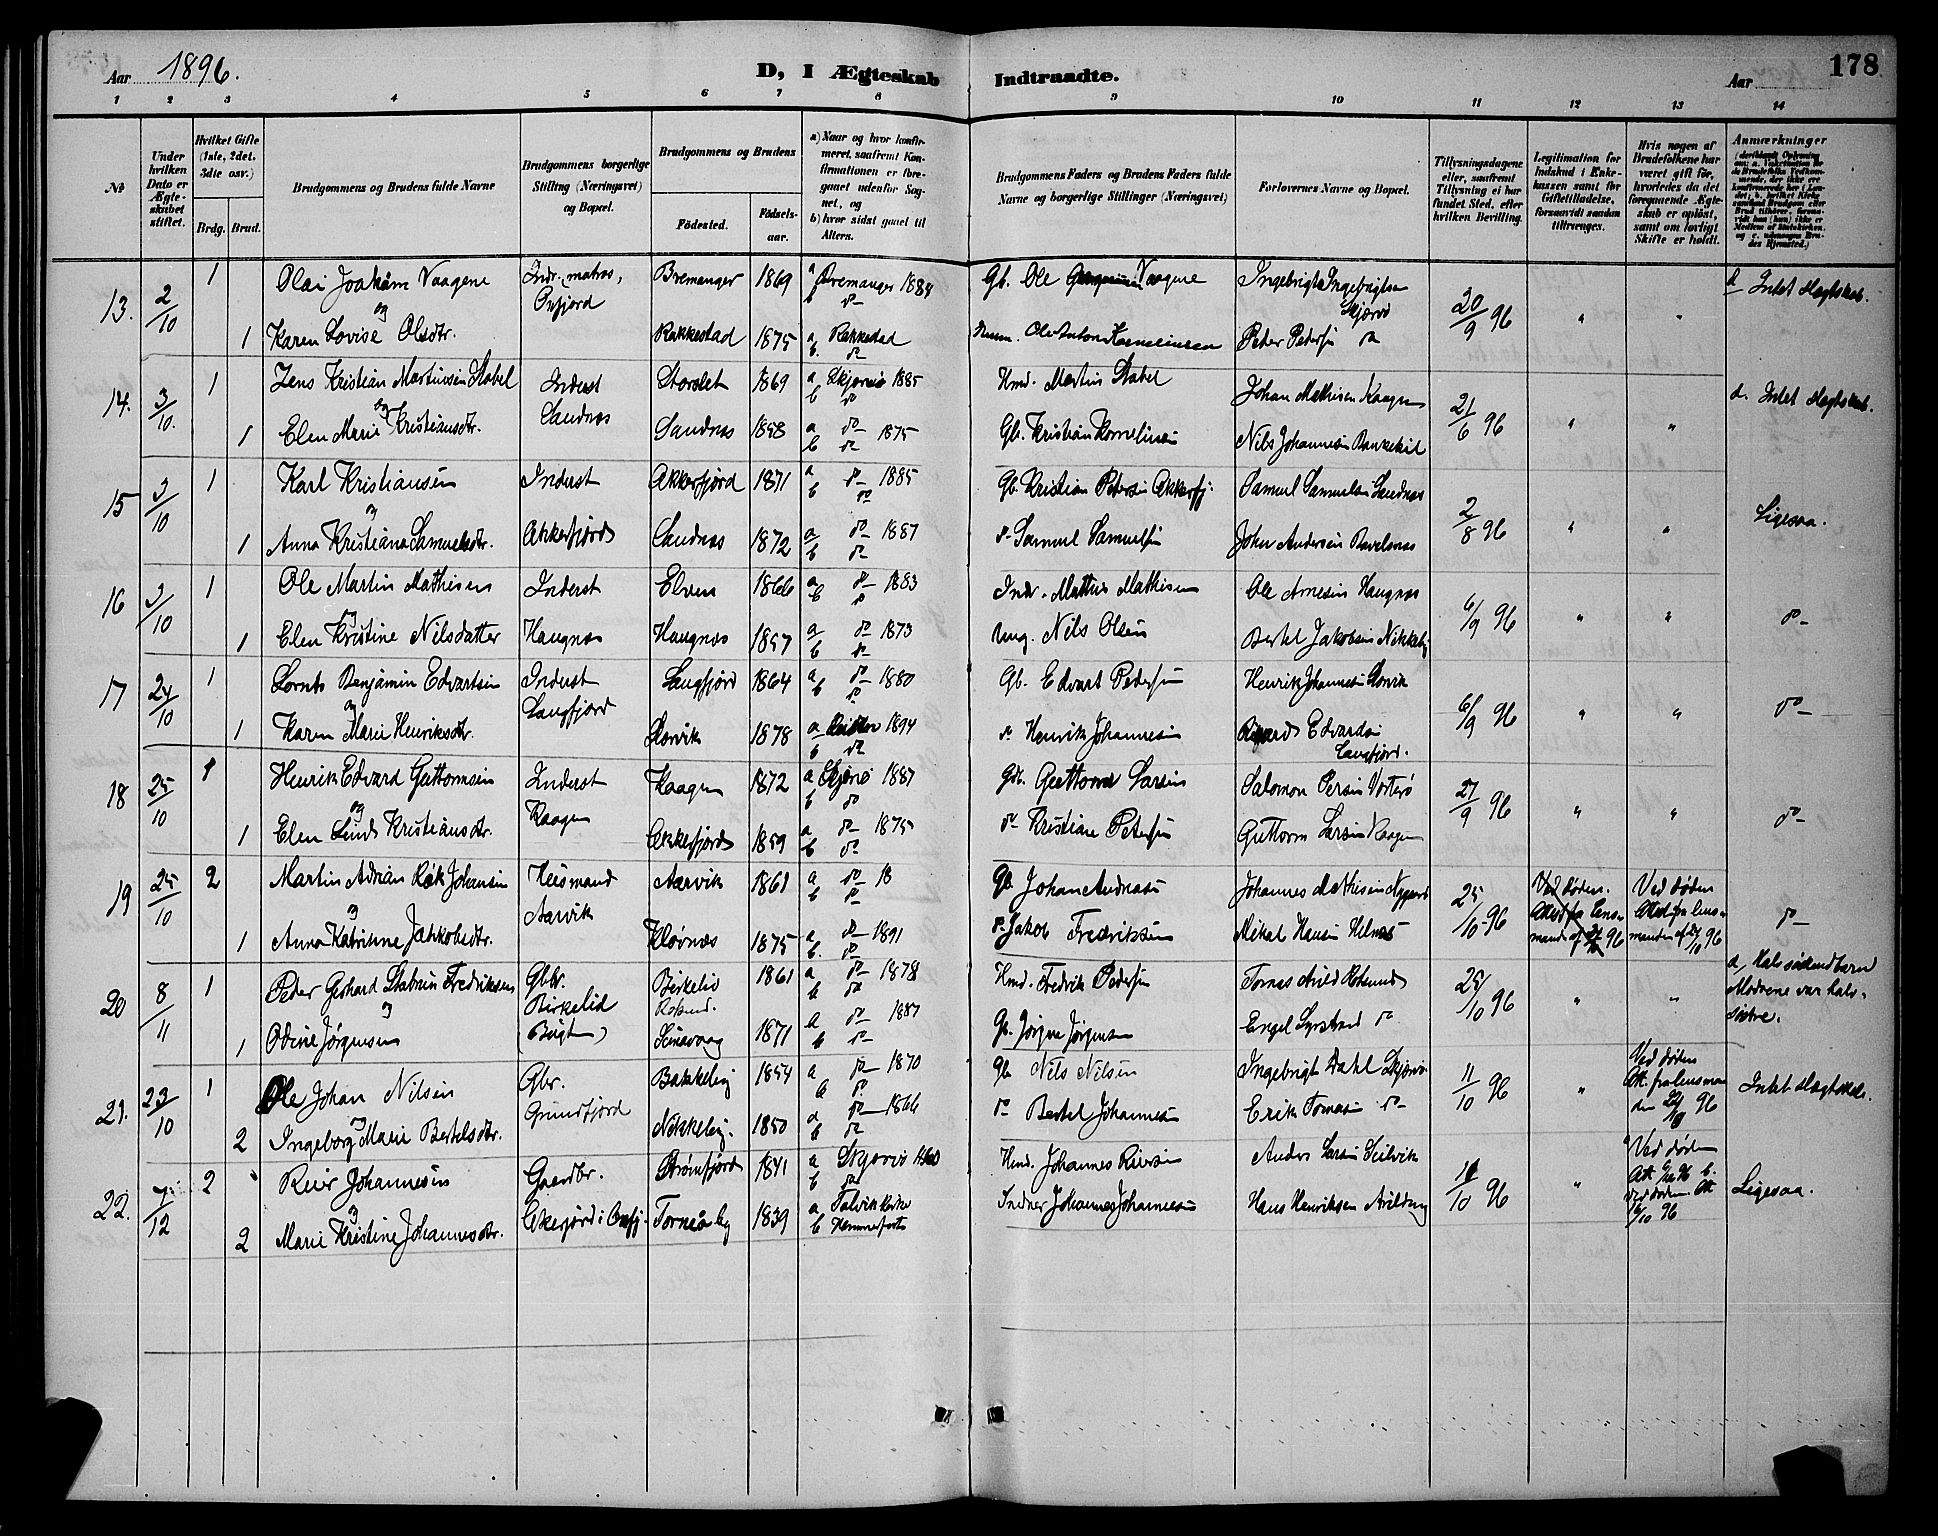 Aar 1896.
D, I Ægteskab Indtraadte.
Aar
178
1 2 3 4 5 6 7 8 9 10 11 12 13 14
No
Under hvilken Dato er Ægteskabet stiftet.
Hvilket Gifte (1ste, 2det, 3die osv.)
Brdg. Brud.
Brudgommens og Brudens fulde Navne
Brudgommens borgerlige Stilling (Næringsvei) og Bopæl.
Brudgommens og Brudens
Fødested. Fødselsaar.
a) Naar og hvor konfirmeret, saafremt Konfirmationen er foregaaet udenfor Sognet, og
b) hvor sidst gaaet til Alters.
Brudgommens Faders og Brudens Faders fulde Navne og borgerlige Stillinger (Næringsvei)
Forlovernes Navne og Bopæl.
Tillysningsdagene eller, saafremt Tillysning ei har fundet Sted, efter hvilken Bevilling.
Legitimation for Indskud i Enkekassen samt for Giftetilladelse, forsaavidt saadan tiltrænges.
Hvis nogen af Brudefolkene har været gift før, hvorledes da det foregaaende Ægteskab er opløst, samt om lovligt Skifte er holdt.
Anmærkninger
13. 2/10 1 Olai Joakim Vaagene Indr. matros, Bremanger 1869 a Bremanger 1884 Gb. Ole Vaagene Ingebrigt Ingebrigtsen 20/9 96 " " d Intet Slegtskab.
og Oxfjord b do Skjervø
1 Karen Lovise Olsdtr. Rakkestad 1875 a Rakkestad b. do Ole Anton Kornelinssen Peder Pedersen do
14. 3/10. 1 Jens Kristian Martinsen Stabel Inderst Storslet 1869 a Skjervø 1885 b do Hmd. Martin Stabel Johan Mathisen Kaagen 21/6 96 " " d. Intet Slegtskab.
og Sandnes
1 Elen Marie Kristiansdtr. Sandnes 1858 a do 1875 b do Gb. Kristian Kornelinsen Nils Johannesen
15 3/10 1 Karl Kristiansen Inderst Akkerfjord 1871 a do 1885 b do Gb. Kristian Petersen Akkerfj. Samuel Samuelsen Sandnes 2/8 96 " " Ligesaa.
1 Anna Kristiana Samuelsdtr. Akkerfjord Sandnes 1872 a do 1887 b do do Samuel Samuelsen John Andersen
16 3/10 1 Ole Martin Mathisen Inderst Elven 1866 a do 1883 b do Indr. Mathis Mathisen Ole Arnesen Haugnes 6/9 96 " " do
og
1 Elen Kristine Nilsdatter Haugnes Haugnes 1857 a do 1873 b do Ung. Nils Olsen Bertel Jakobsen Nikkeby
17 24/10 1 Lornts Benjamin Edvartsen Inderst Langfjord 1864 a do 1880 b do Gb. Edvart Pedersen Henrik Johannesen 6/9 96 " " do
og Langfjord
1 Karen Marie Henriksdtr. 1878 a 1894 b do do Henrik Johannesen Edvardsen
Langfjord.
18 25/10 1 Henrik Edvard Guttormsen Inderst Kaagen 1872 a Skjervø 1887 b do Gb. Guttorm Larsen Salomon Persen Vorterø 27/9 96 " " do
og Kaagen
1 Elen Kristiansdtr. Akkerfjord 1859 a do 1875 b do do Kristian Petersen Guttorm Larsen Kaagen
19 25/10 2 Martin Adrian Røk Johansen Huusmand Aarvik 1861 a do 18 b do Gb Johan Andreasen Johannes Mathisen Nygaard 25/10 96 Ved døden. Attest fra Lensmanden af 96 Ved døden Attest fra Lensmanden af 21/10 96 do
og Aarvik
1 Anna Katrinne Jakkobsdtr. Kløvnes 1875 a. do 1891 b. do do Jakob Fredriksen Mikal Hansen Helnes
20 8/11 1 Peder Gerhard Stabrun Fredriksen Gbr. Birkelid 1861 a do 1878 b do Hmd. Fredrik Pedersen Tomas Arild Rotsund 25/10 96 " " d, Halvsødskendbarn
Birkelid Rotsund. Mødrene var halv-
1 Odine Jørgensen (Bugt) 1871 a do 1887 b do Gb. Jørgen Jørgensen Engel Lyrstrand do søstre.
21. 23/10 1 Ole Johan Nilsen Gbr. Bakkeby 1854 a do 1870 b do Gb Nils Nilsen Ingebrigt Dahl Skjervø 11/10 96 " Ved døden Att. fra lensmanden 96 Intet Slegtskab.
Grundfjord
2 Ingeborg Marie Bertelsdtr. Nikkeby. 1850 a do 1866 b do do Bertel Johannesen Erik Tomasen do
22. 7/12 2 Reier Johannesen Gaardbr. Strømfjord 1841 a Skjervø 1860 b do Hmd. Johannes Reiersen Anders Larsen Seilvik 11/10 96 " Ved døden Att. 96 b. ved døden Att 6/10 96 Ligesaa.
2 Marie Kristine Johannesdtr. Torneåby 1839 a Talvik Kirke b Hammerfest Indner Johannes Johannesen Hans Henriksen